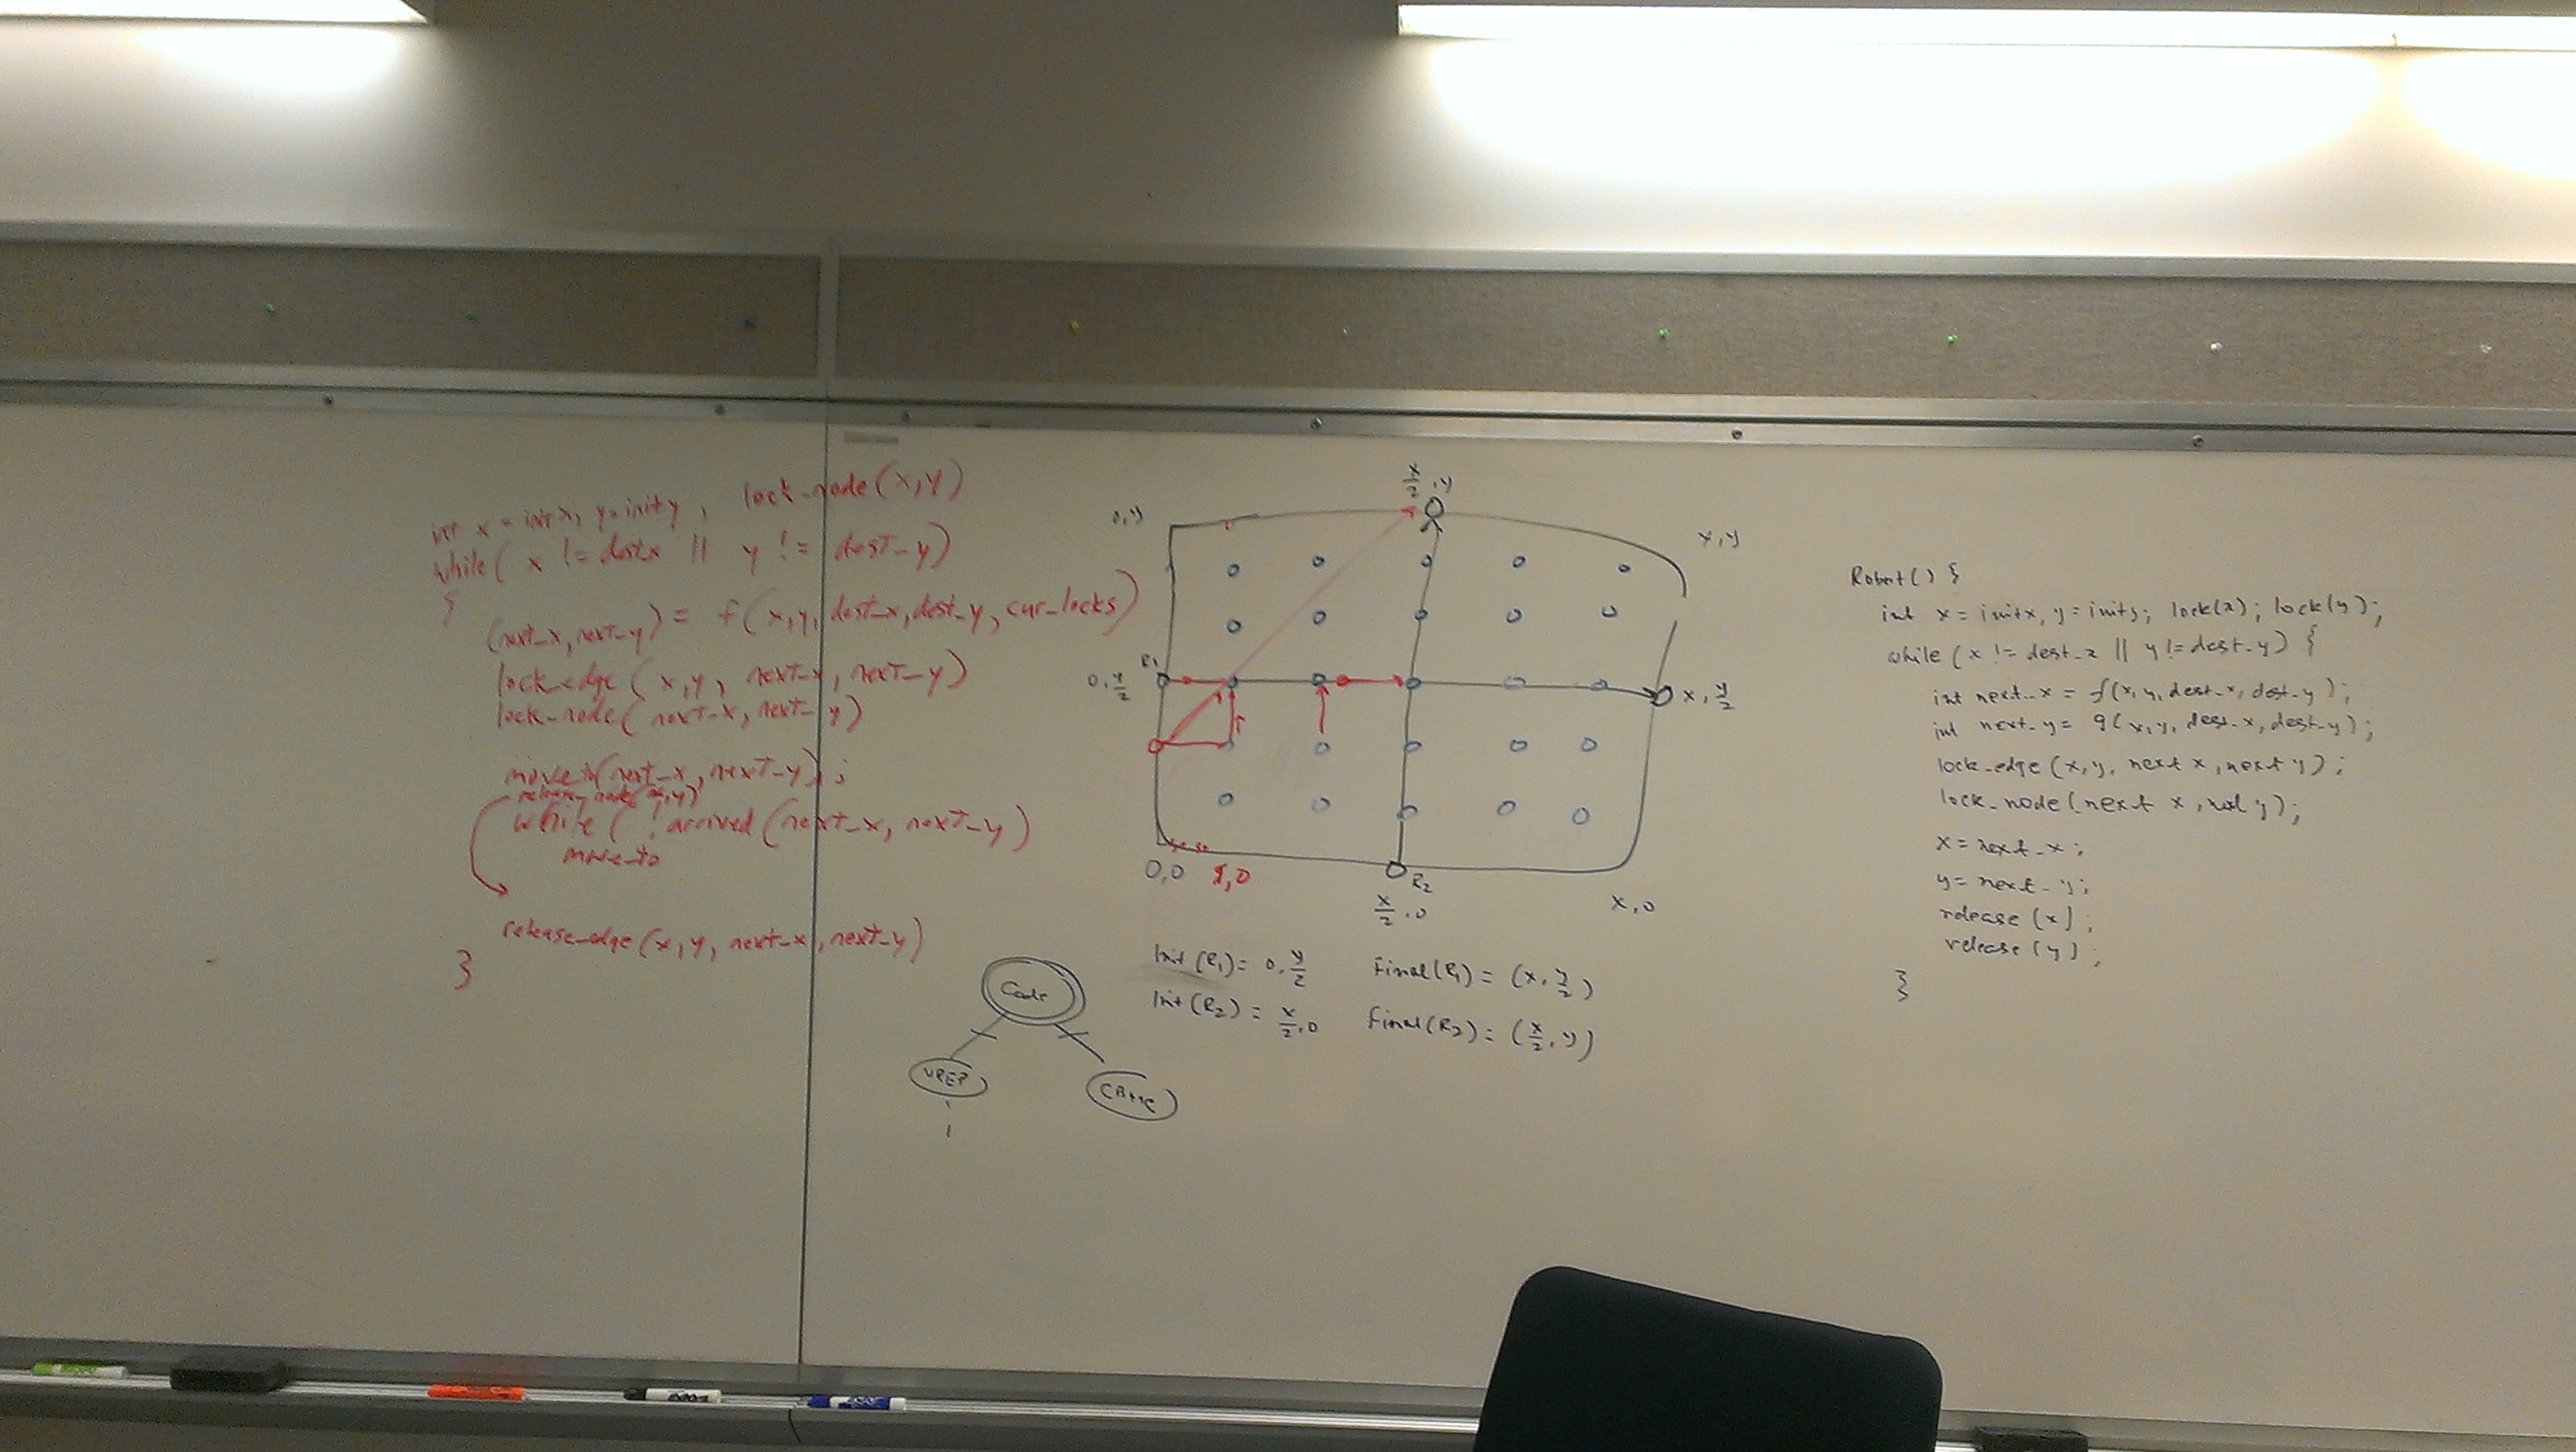 int x = initx, y=inity, lock_node(x,y)
while( x != dest_x || y != dest_y)
{
(next_x,next_y) = f(x,y,dest_x,dest_y,cur_locks)
lock_edge( x,y, next_x, next_y)
lock_node( next_x, next_y)
move to(next_x, next_y);
release_node(x,y)
while ( ! arrived (next_x, next_y)
move_to
release_edge(x,y, next_x, next_y)
}
0,y
x/2,y
x,y
R1
0,y/2
x,y/2
0,0
1,0
R2
x/2,0
x,0
Init(R1)= 0,y/2 Final(R1) = (x,y/2)
Init(R2)= x/2,0 Final(R2) = (x/2,y)
Code
VREP
CBMC
Robot() {
int x = initx, y=inity; lock(x); lock(y);
while (x != dest_x || y != dest_y) {
int next_x = f(x,y,dest_x,dest_y);
int next_y = g(x,y,dest_x,dest_y);
lock_edge(x,y, next x, next y);
lock_node(next x, next y);
x = next_x;
y = next_y;
release (x);
release (y);
}